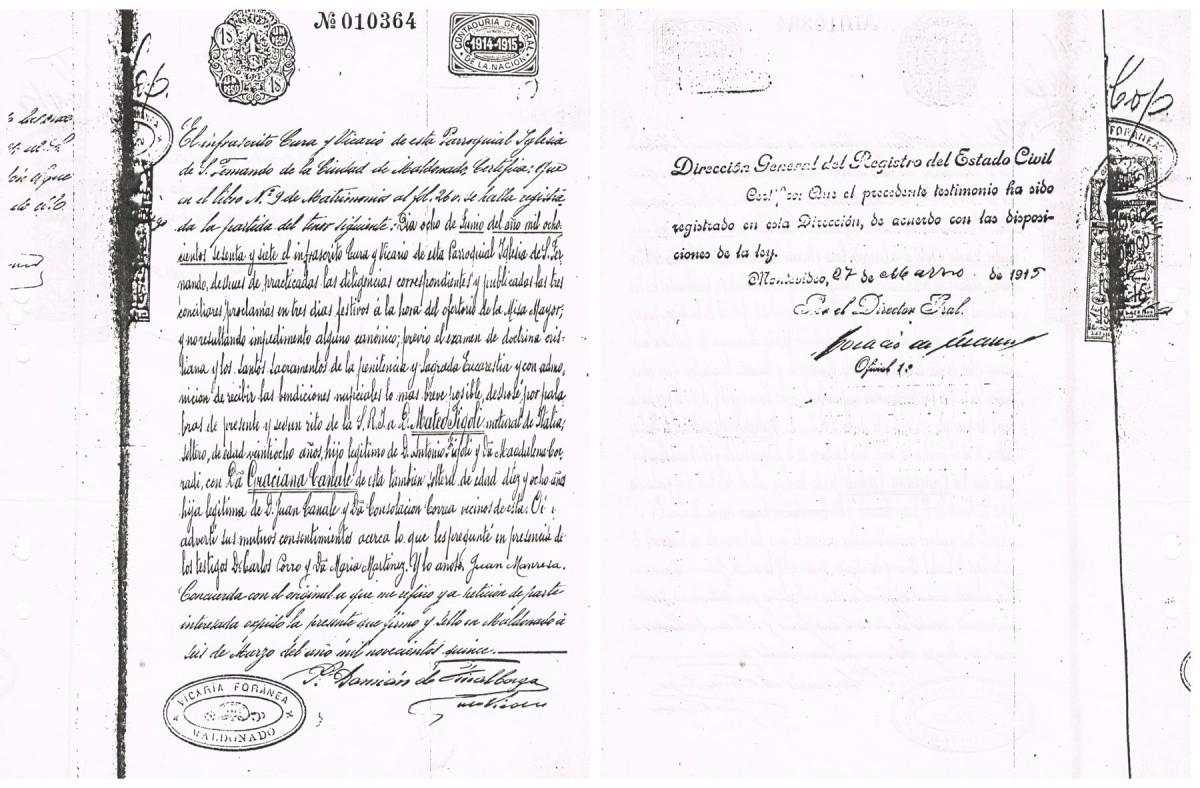 № 010364
CONTADURIA GENERAL
1914-1915
DE LA NACION
El infrascrito Cura y Vicario de esta Parroquial Iglesia
de S. Fernando de la Ciudad de Maldonado, Certifica: Que
en el libro N.º 9 de Matrimonio al fol. 26 v. se halla registra
da la partida del tenor siguiente: Dia ocho de Junio del año mil ocho
cientos sesenta y siete el infrascrito Cura y Vicario de esta Parroquial Iglesia de S. Fer
nando, despues de practicadas las diligencias correspondientes y publicadas las tres
conciliares proclamas en tres dias festivos á la hora del ofertorio de la Misa Mayor;
y no resultando impedimento alguno canónico; previo el examen de doctrina cris-
tiana y los santos sacramentos de la penitencia y Sagrada Eucarestia y con admo-
nicion de recibir las bendiciones nupciales lo mas breve posible, desposé por pala
bras de presente y segun rito de la S. R. I. a D. Mateo Figoli natural de Italia,
soltero, de edad veintiocho años, hijo legitimo de D. Antonio Figoli y Da Magdalena Cor
radi, con Da Graciana Canale de esta tambien soltera de edad diez y ocho años
hija legitima de D. Juan Canale y Da Consolacion Correa vecinos de esta. Oí i
adverti sus mutuos consentimientos acerca lo que les pregunté en presencia de
los testigos D. Carlos Corro y Da Maria Martinez. Y lo anoto, Juan Manresa.
Concuerda con el original a que me refiero y a peticion de parte
interesada expido la presente que firmo y sello en Maldonado á
seis de Marzo del año mil novecientos quince.
P. Damián de
VICARÍA FORÁNEA
MALDONADO
Cop
FORÁNEA
Dirección General del Registro del Estado Civil
Certifico: Que el precedente testimonio ha sido
registrado en esta Dirección, de acuerdo con las disposi-
ciones de la ley.
Montevideo, 27 de Marzo de 1915
Por el Director Gral.
Oficial 1º